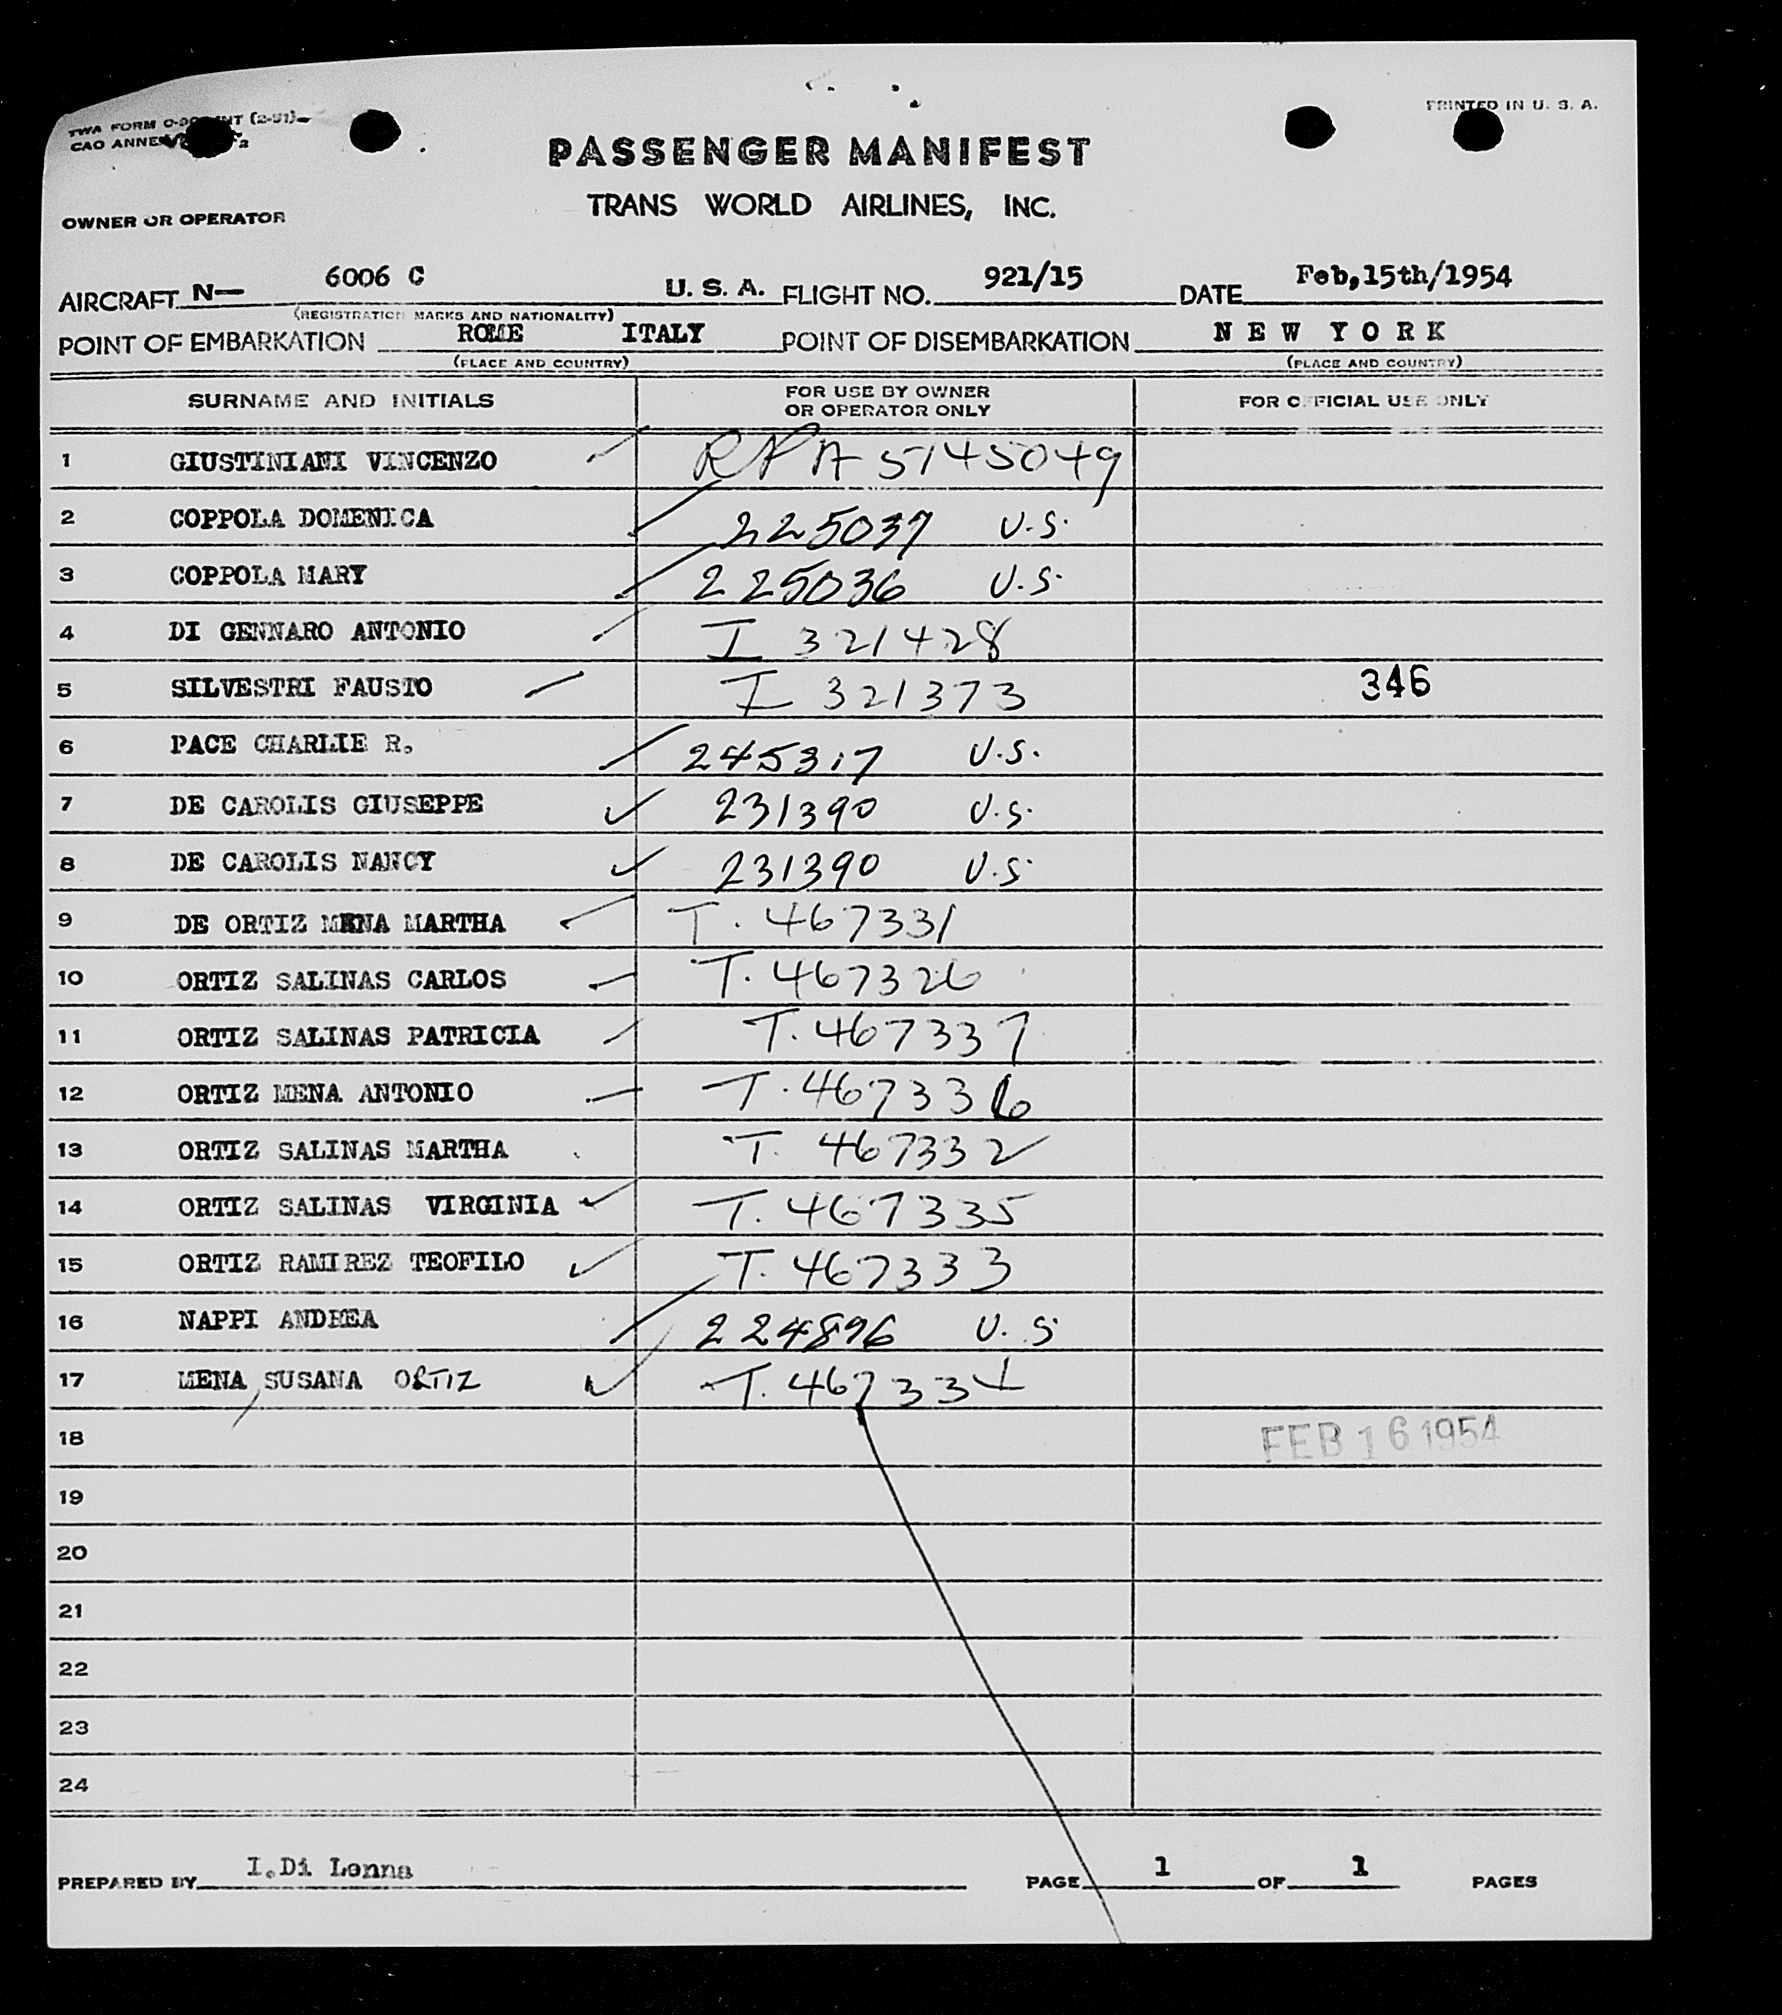 PRINTED IN U. S. A.
TWA FORM (2-51)
PASSENGER MANIFEST
TRANS WORLD AIRLINES, INC.
OWNER OR OPERATOR
AIRCRAFT N— 6006 C U. S. A. FLIGHT NO. 921/15 DATE Feb,15th/1954
(REGISTRATION MARKS AND NATIONALITY)
POINT OF EMBARKATION ROME ITALY POINT OF DISEMBARKATION N E W Y O R K
(PLACE AND COUNTRY) (PLACE AND COUNTRY)
SURNAME AND INITIALS FOR USE BY OWNER OR OPERATOR ONLY FOR OFFICIAL USE ONLY
1 GIUSTINIANI VINCENZO A 5145049
2 COPPOLA DOMENICA 225037 U.S.
3 COPPOLA MARY 225036 U.S.
4 DI GENNARO ANTONIO I 321428
5 SILVESTRI FAUSTO I 321373 346
6 PACE CHARLIE R. 245317 U.S.
7 DE CAROLIS GIUSEPPE 231390 U.S.
8 DE CAROLIS NANCY 231390 U.S.
9 DE ORTIZ MENA MARTHA T. 467331
10 ORTIZ SALINAS CARLOS T. 467326
11 ORTIZ SALINAS PATRICIA T. 467337
12 ORTIZ MENA ANTONIO T. 467336
13 ORTIZ SALINAS MARTHA T. 467332
14 ORTIZ SALINAS VIRGINIA T. 467335
15 ORTIZ RAMIREZ TEOFILO T. 467333
16 NAPPI ANDREA 224896 U.S
17 MENA, SUSANA ORTIZ T. 467334
18 FEB 16 1954
19
20
21
22
23
24
PREPARED BY I.Di Lenna PAGE 1 OF 1 PAGES